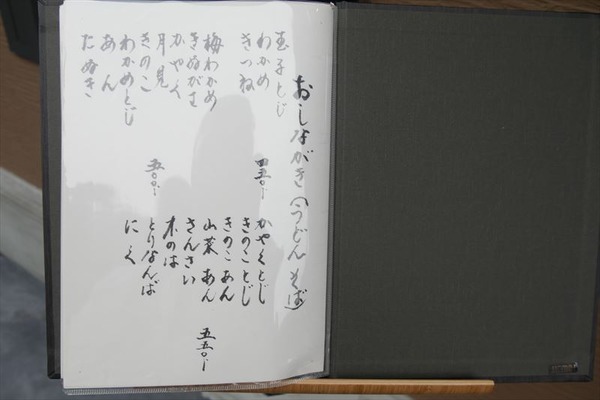 おしながき(うどん そば)
玉子とじ
わかめ
きつね
四五〇、
梅わかめ
きぬがさ
かやく
月見
きのこ
わかめとじ
あん
たぬき
五〇〇、
かやくとじ
きのことじ
きのこあん
山菜あん
さんさい
木のは
とりなんば
にく
五五〇、